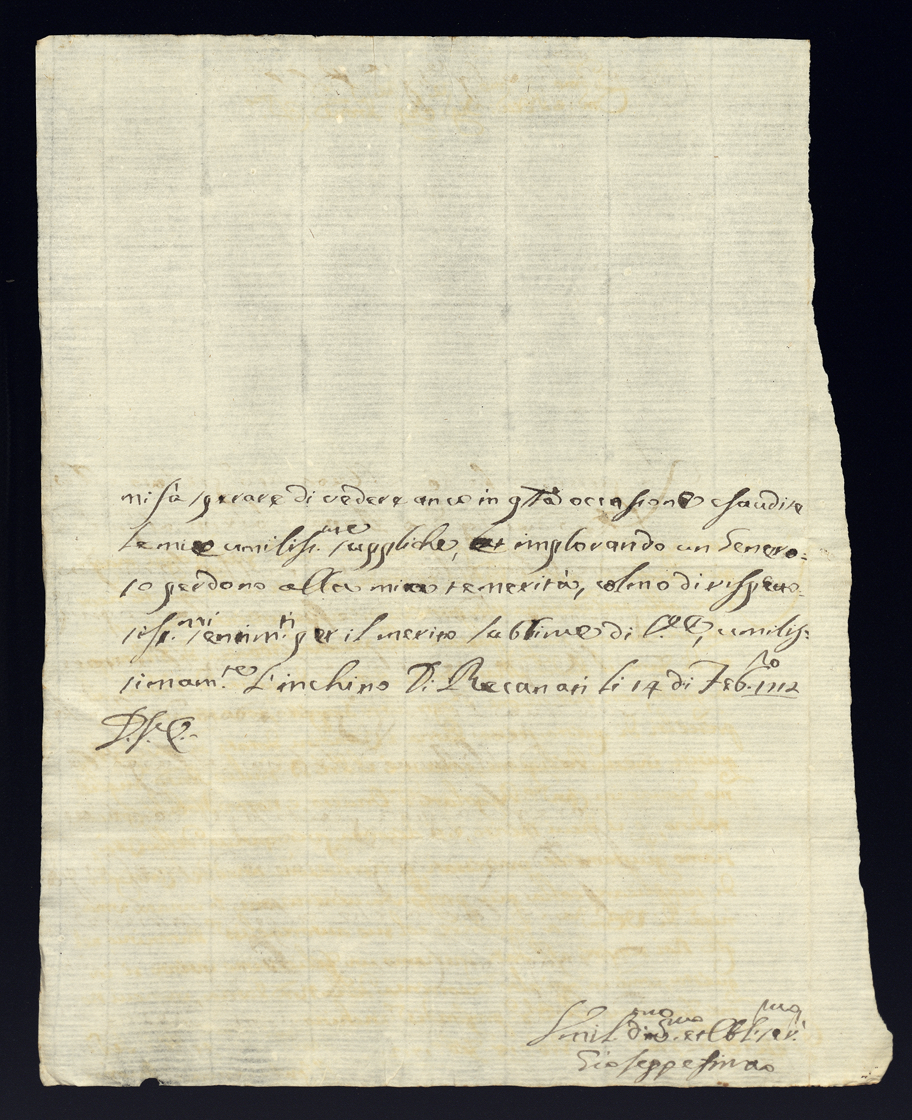 mi fà sperare di vedere anco in q.sta occasione esaudire
le mie umiliss.me suppliche, et implorando un Genero:
so perdono alla mia temerità, colmo di rispetto
siss.mi sentim.ti per il merito sublime di V.E., umilis:
simam.te L'inchino Di Recanati li 14 di Feb.ro 1712
D. V. E.
Umil.mo Dev.mo et Obl. ser.
Gioseppe